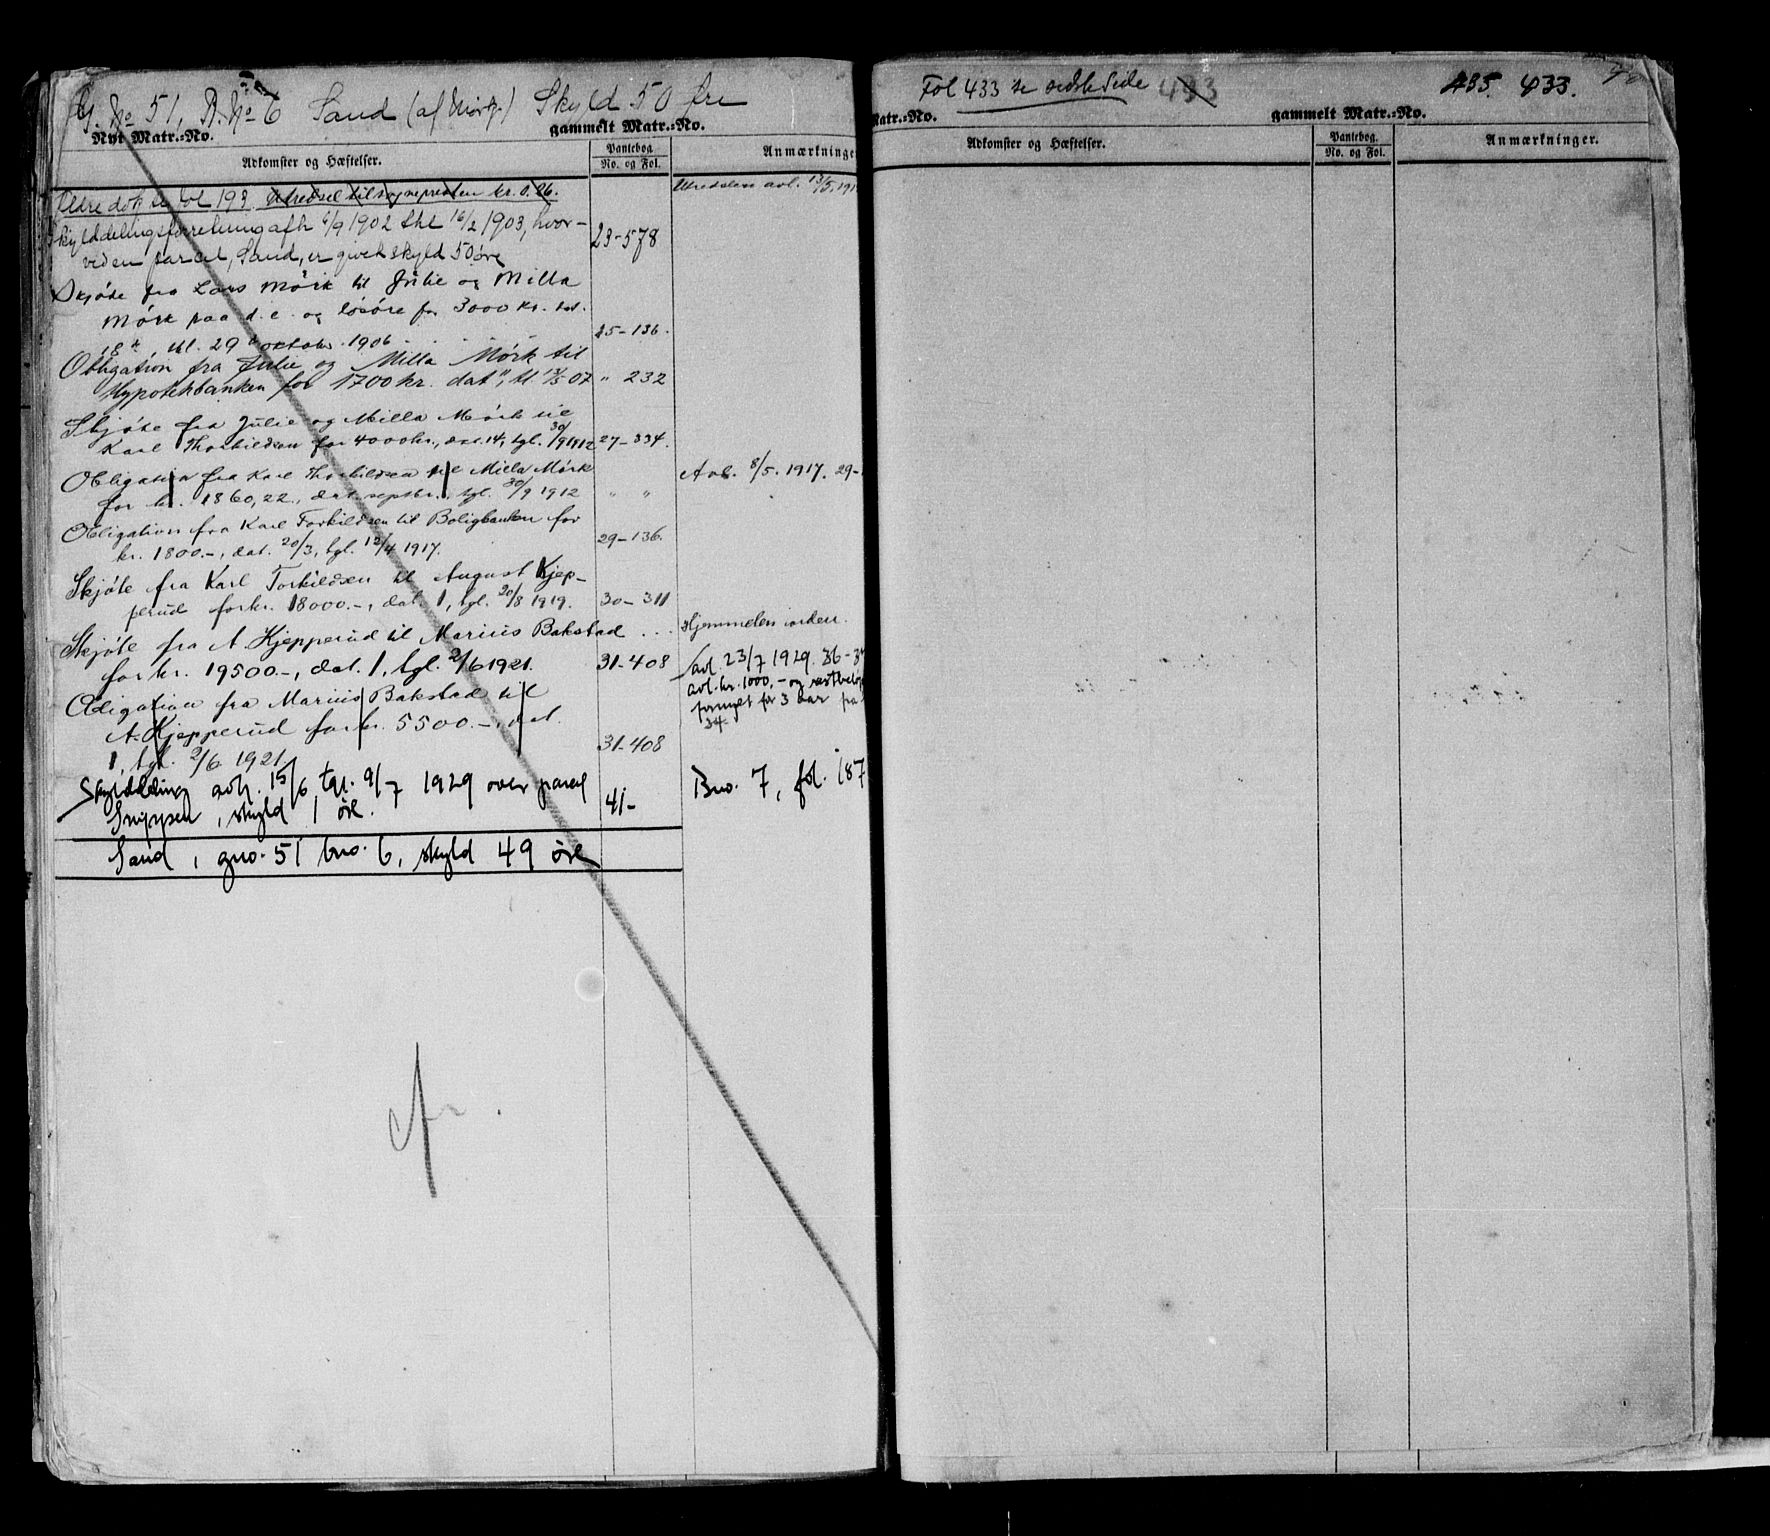 G. No 51, B. No 6 Sand (af Mørk) Skyld 50 øre
Nyt Matr.-No. gammelt Matr.-No.
Adkomster og Hæftelser. Pantebog. No. og Fol. Anmærkninge
Ældre dok se fol 193. Utredsel til sognepresten kr. 0.26. Utredselen avl. 13/5. 191
Skylddelingsforretning afh 6/9 1902 thl 16/2 1903, hvor- 23-578
ved en parcel, Sand, er givet skyld 50 øre
Skjøte fra Lars Mørk til Julie og Milla
Mørk paa d. e. og løsøre for 3000 kr. dat.
18, thl. 29 oktober 1906 25-136.
Obligation fra Julie og Milla Mørk til
Hypotekbanken for 1700 kr. dat , tl 07 " 232
Skjøte fra Julie og Milla Mørk til
Karl Thorkildsen for 4000 kr., dat. 14, tgl. 30/9 1912 27-334.
Obligation fra Karl Thorkildsen til Milla Mørk Avl. 8/5. 1917. 29-
for kr. 1860,22, dat. septbr., tgl. 30/9 1912 " "
Obligation fra Karl Torkildsen til Boligbanken for
kr. 1800.-, dat. 20/3, tgl. 12/4 1917. 29-136.
Skjøte fra Karl Torkildsen til August Kjep-
perud for kr. 18000.-, dat. 1, tgl. 20/8 1919. 30-311
Skjøte fra A Kjepperud til Marius Bakstad . . . Hjemmelen i orden.
for kr. 19500.-, dat. 1, tgl. 2/6 1921. 31-408
avl. 23/7 1929. 36-3
avl. kr. 1000,- og restbeløp
fornyet for 3 aar fra
34.
Obligation fra Marius Bakstad til
A. Kjepperud for kr. 5500.-, dat.
1, tgl. 2/6 1921 31-408
Skylddeling avh. 15/6 tgl. 9/7 1929 over parcel Bno. 7, fol. 187
Snippen, skyld 1 øre. 41-
Sand, gno. 51 bno. 6, skyld 49 øre
Fol 433 se sidste Side 493 435. 433.
Matr.-No. gammelt Matr.-No.
Adkomster og Hæftelser. Pantebog. No. og Fol. Anmærkninger.